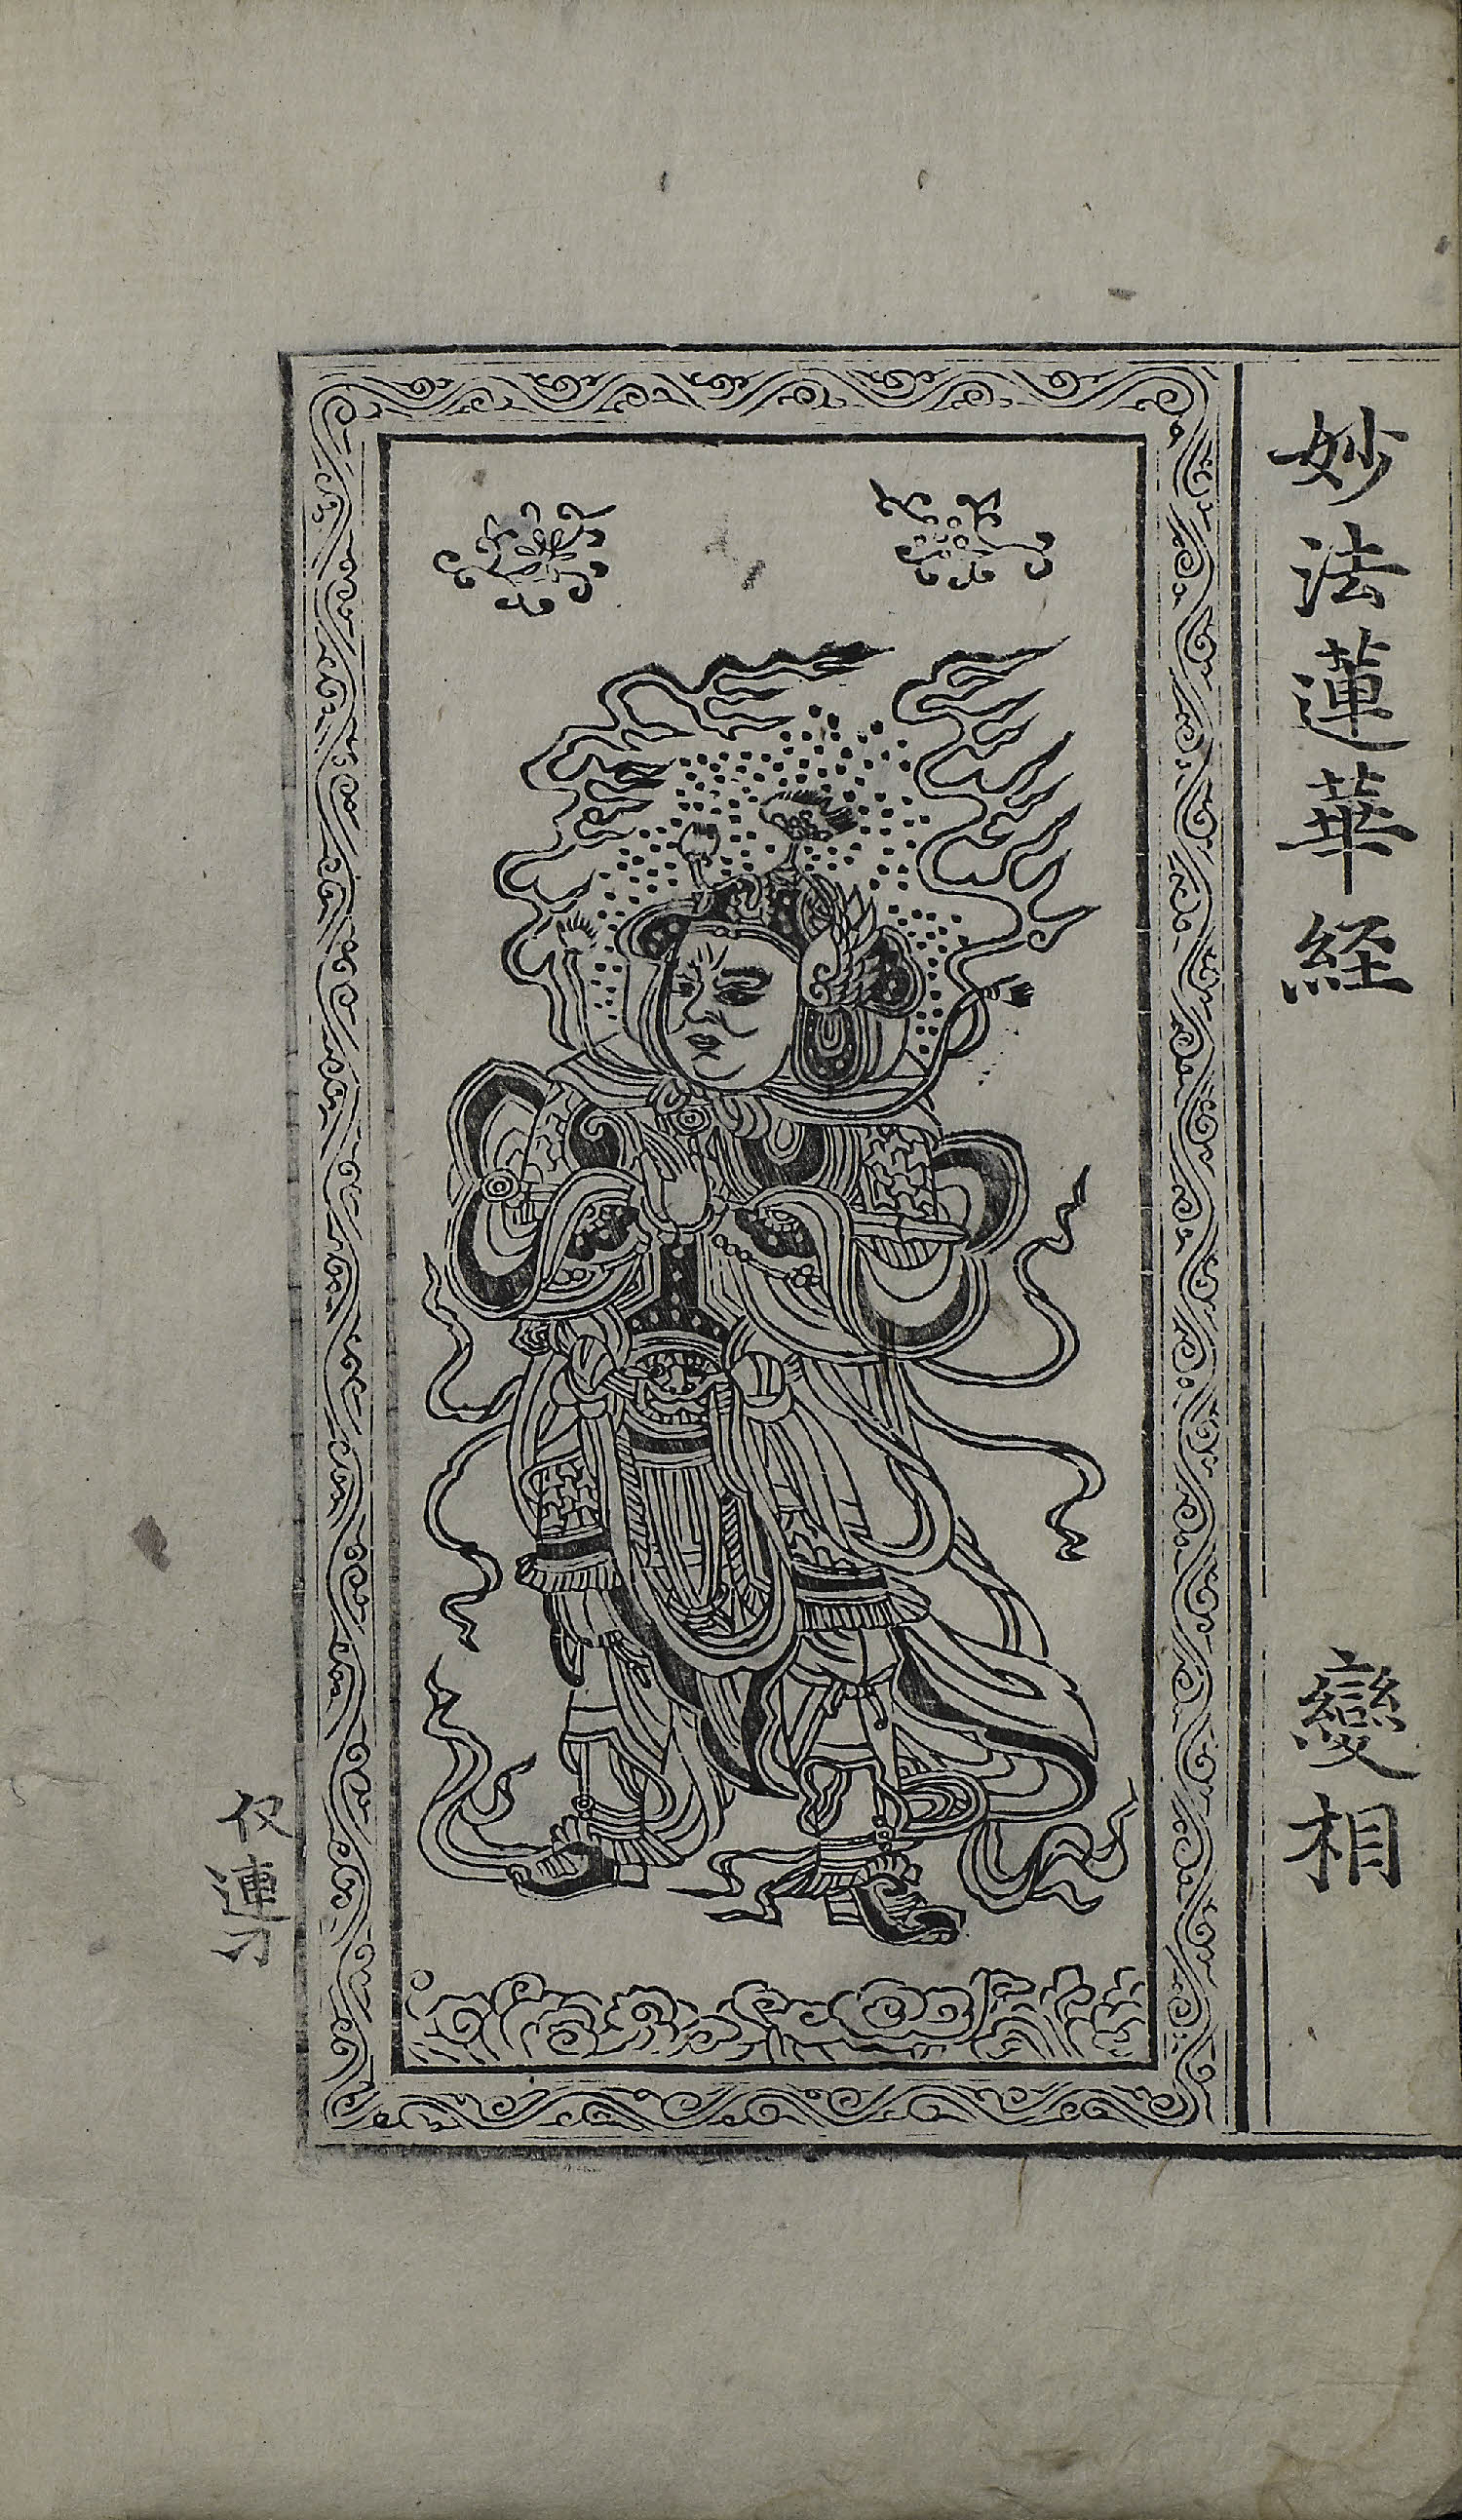 妙法蓮華経
變相
仅連刁